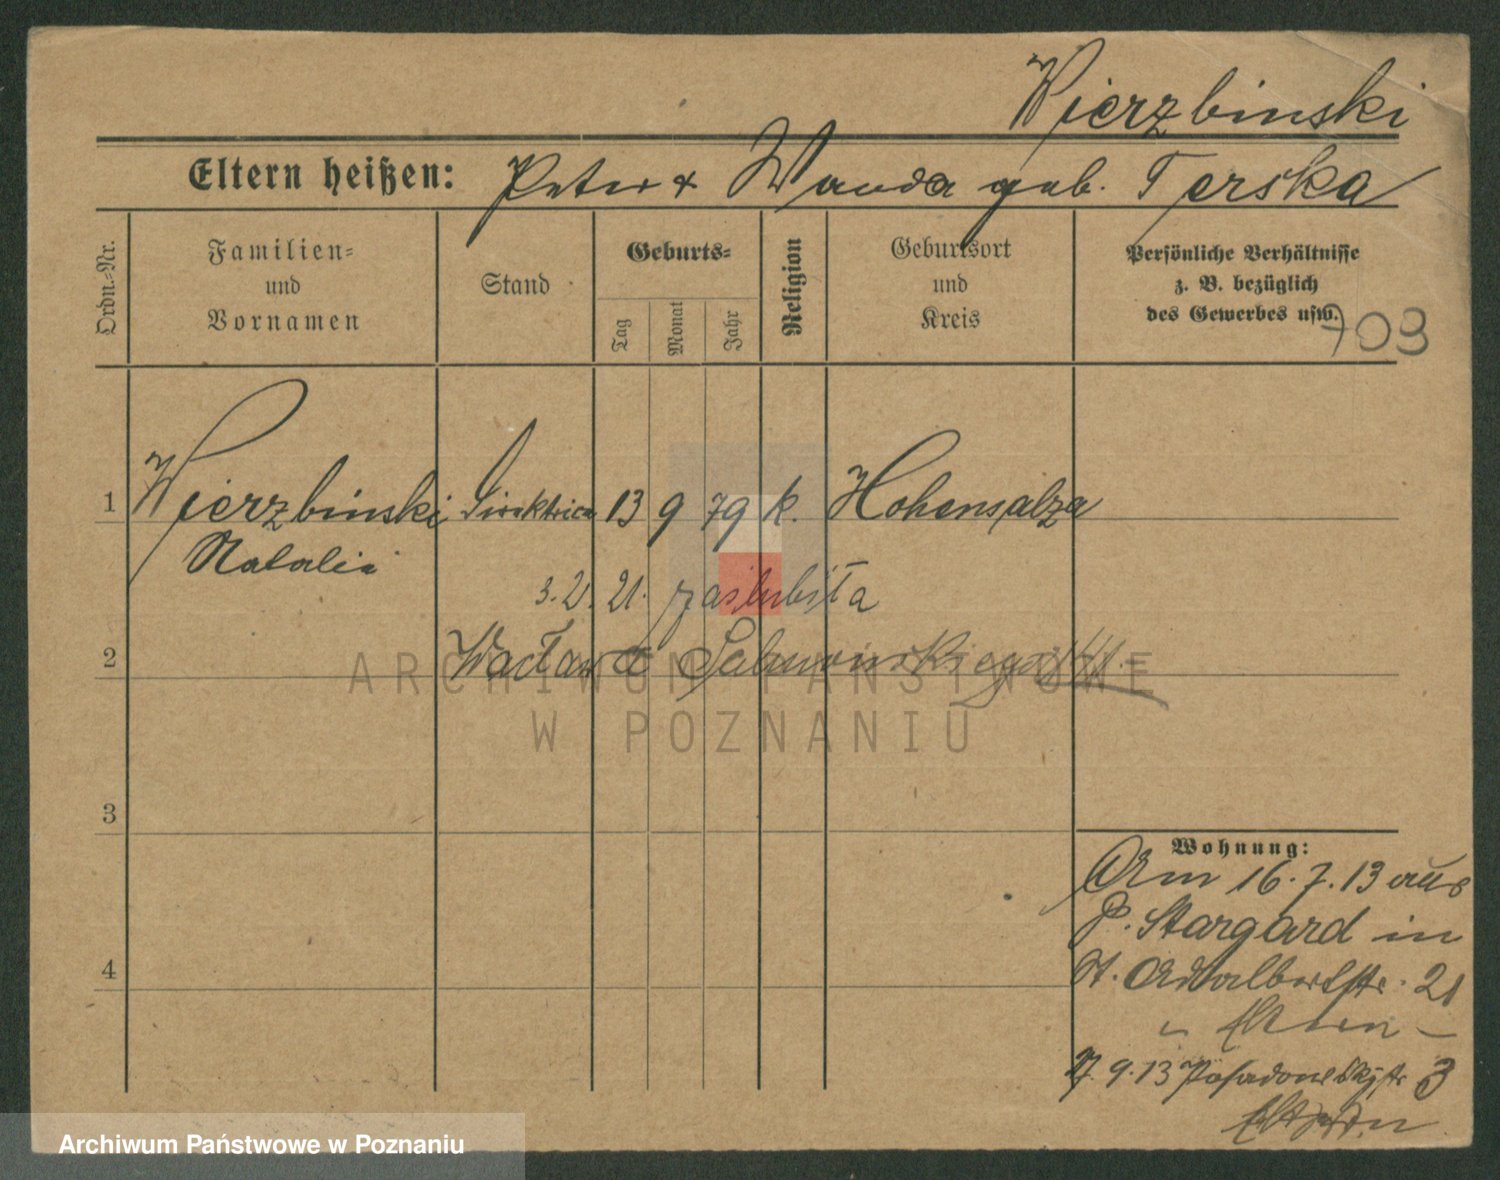 Wierzbinski
Eltern heißen: Peter + Wanda geb. Terska
Ordn.-Nr.
Familien- und Vornamen
Stand
Geburts-
Tag
Monat
Jahr
Religion
Geburtsort und Kreis
Persönliche Verhältnisse
z. B. bezüglich
des Gewerbes usw.
703
1 Wierzbinski Direktrice 13 9 79 k. Hohensalza
Natalie
3. 2. 21. zaślubiła
2 Wacława
ARCHIWUM PAŃSTWOWE
W POZNANIU
3
Wohnung:
Am 16. 7. 13 aus
P. Stargard in
St. Adalbertstr. 21
4
Eltern
9. 13 3
Archiwum Państwowe w Poznaniu